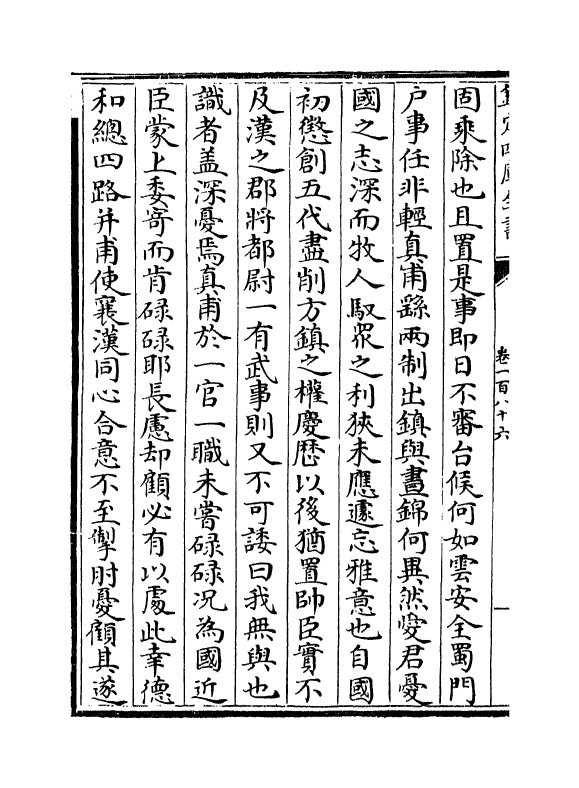 欽定四庫全書
卷一百八十六
固乘除也且置是事即日不審台候何如雲安全蜀門
户事任非輕真甫繇兩制出鎮與晝錦何異然愛君憂
國之志深而牧人馭衆之利狹未應遽忘雅意也自國
初懲創五代盡削方鎮之權慶歴以後猶置帥臣實不
及漢之郡將都尉一有武事則又不可諉曰我無與也
識者盖深憂焉真甫於一官一職未嘗碌碌况為國近
臣蒙上委寄而肯碌碌耶長慮却顧必有以處此幸德
和總四路并甫使襄漢同心合意不至掣肘憂顧其遂